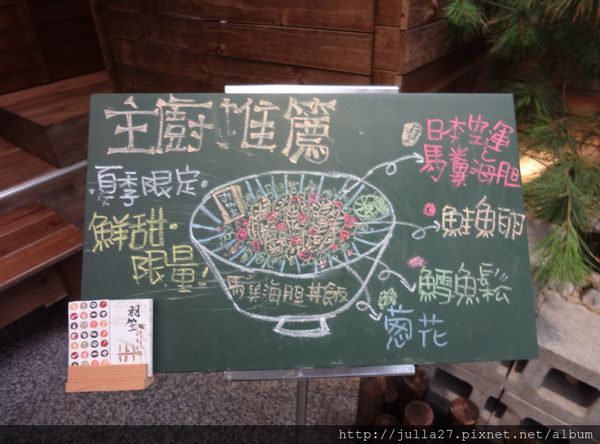 主廚推薦
夏季限定
鮮甜·
限量!
馬糞海胆丼飯
日本空運
馬糞海胆
鮭魚卵
鱈魚鬆
蔥花
羽笠
http://julla27.pixnet.net/album